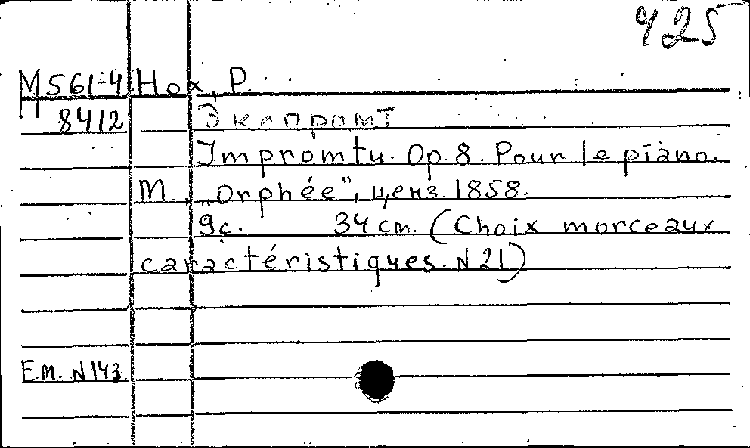 425
М561-4 Нох, Р.
8412 Экспромт
Impromtu. Op. 8. Pour le piano.
М., „Orphée", ценз. 1858.
9с. 34 см. (Choix morceaux
caractéristiques. N 21)
Е.М. N 143